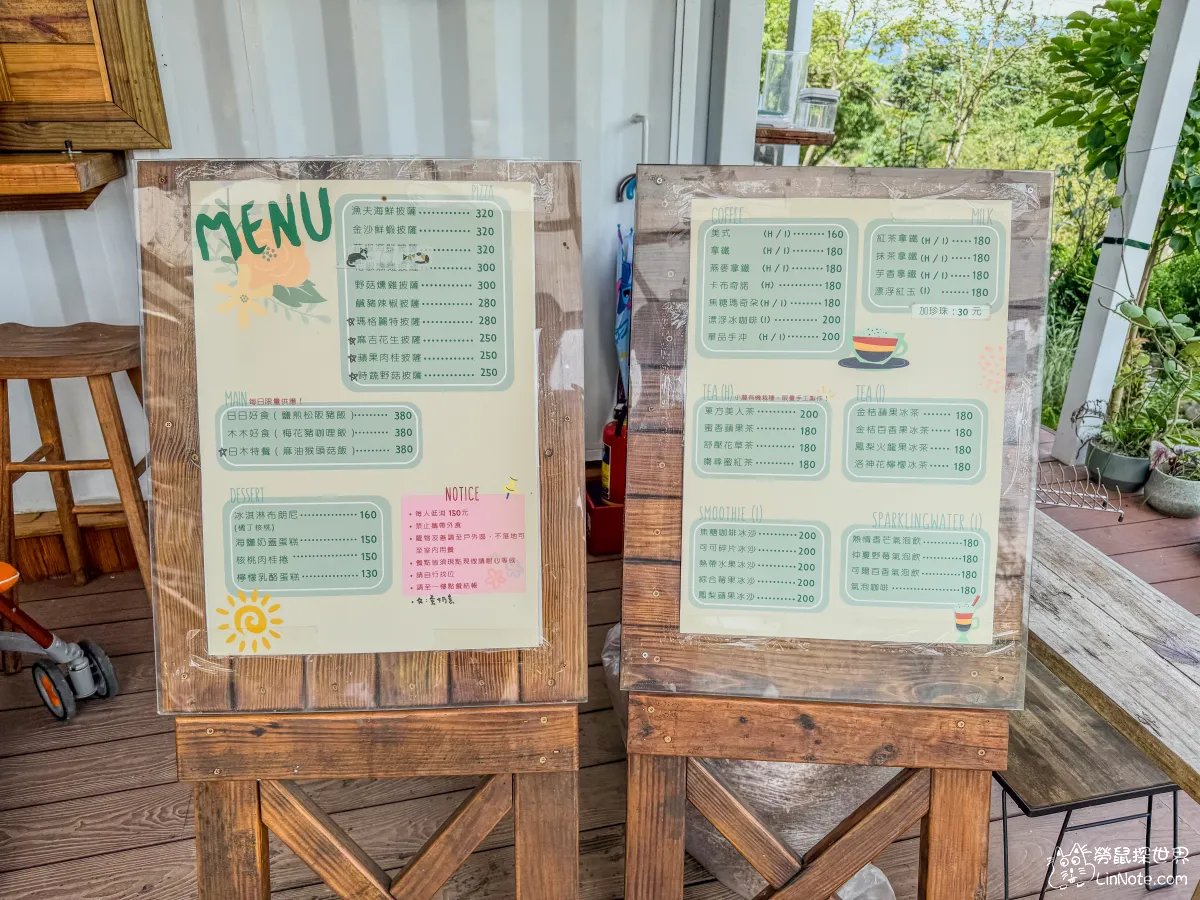 MENU
PIZZA
漁夫海鮮披薩 320
金沙鮮蝦披薩 320
320
300
野菇燻雞披薩 300
鹹豬辣椒披薩 280
☆瑪格麗特披薩 280
☆麻吉花生披薩 250
☆蘋果肉桂披薩 250
☆時蔬野菇披薩 250
MAIN 每日限量供應！
日日好食（鹽煎松阪豬飯） 380
木木好食（梅花豬咖哩飯） 380
☆日木特餐（麻油猴頭菇飯） 380
DESSERT
冰淇淋布朗尼 160
(橘丁核桃)
海鹽奶蓋蛋糕 150
核桃肉桂捲 150
檸檬乳酪蛋糕 130
NOTICE
• 每人低消 150元
• 禁止攜帶外食
• 寵物友善請至戶外區，不落地可
至室內用餐
• 餐點皆須現點現做請耐心等候
• 請自行找位
• 請至一樓點餐結帳
• ☆：蛋奶素
COFFEE
美式 (H / I) 160
拿鐵 (H / I) 180
燕麥拿鐵 (H / I) 180
卡布奇諾 (H) 180
焦糖瑪奇朵 (H / I) 180
漂浮冰咖啡 (I) 200
單品手沖 (H / I) 200
MILK
紅茶拿鐵 (H / I) 180
抹茶拿鐵 (H / I) 180
芋香拿鐵 (H / I) 180
漂浮紅玉 (I) 180
加珍珠：30 元
TEA (H) 小農有機栽種，限量手工製作！
東方美人茶 200
蜜香蘋果茶 180
舒壓花草茶 180
棗尊蜜紅茶 180
TEA (I)
金桔蘋果冰茶 180
金桔百香果冰茶 180
鳳梨火龍果冰茶 180
洛神花檸檬冰茶 180
SMOOTHIE (I)
焦糖咖啡冰沙 200
可可碎片冰沙 200
熱帶水果冰沙 200
綜合莓果冰沙 200
鳳梨蘋果冰沙 200
SPARKLINGWATER (I)
熱情香芒氣泡飲 180
仲夏野莓氣泡飲 180
可爾百香氣泡飲 180
氣泡咖啡 180
勞鼠探世界
LinNote.com